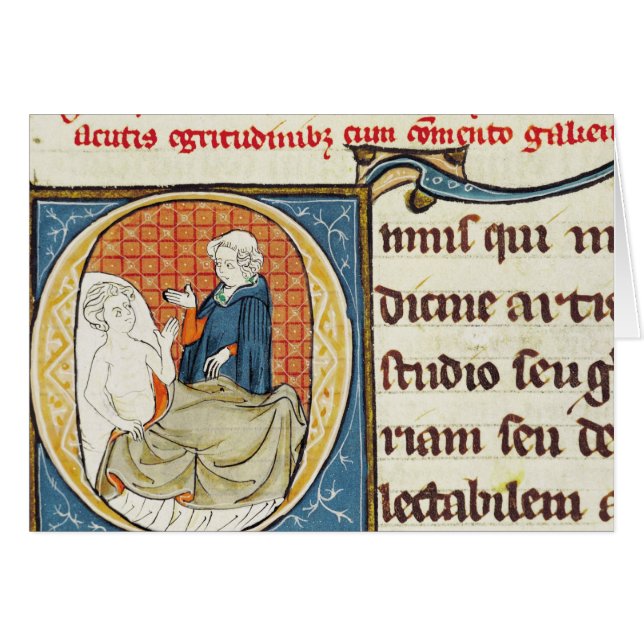 acutis egritudinibꝫ cum cōmento galien
mnis qui m
dicine artis
studio seu gl
riam seu de
lectabilem a